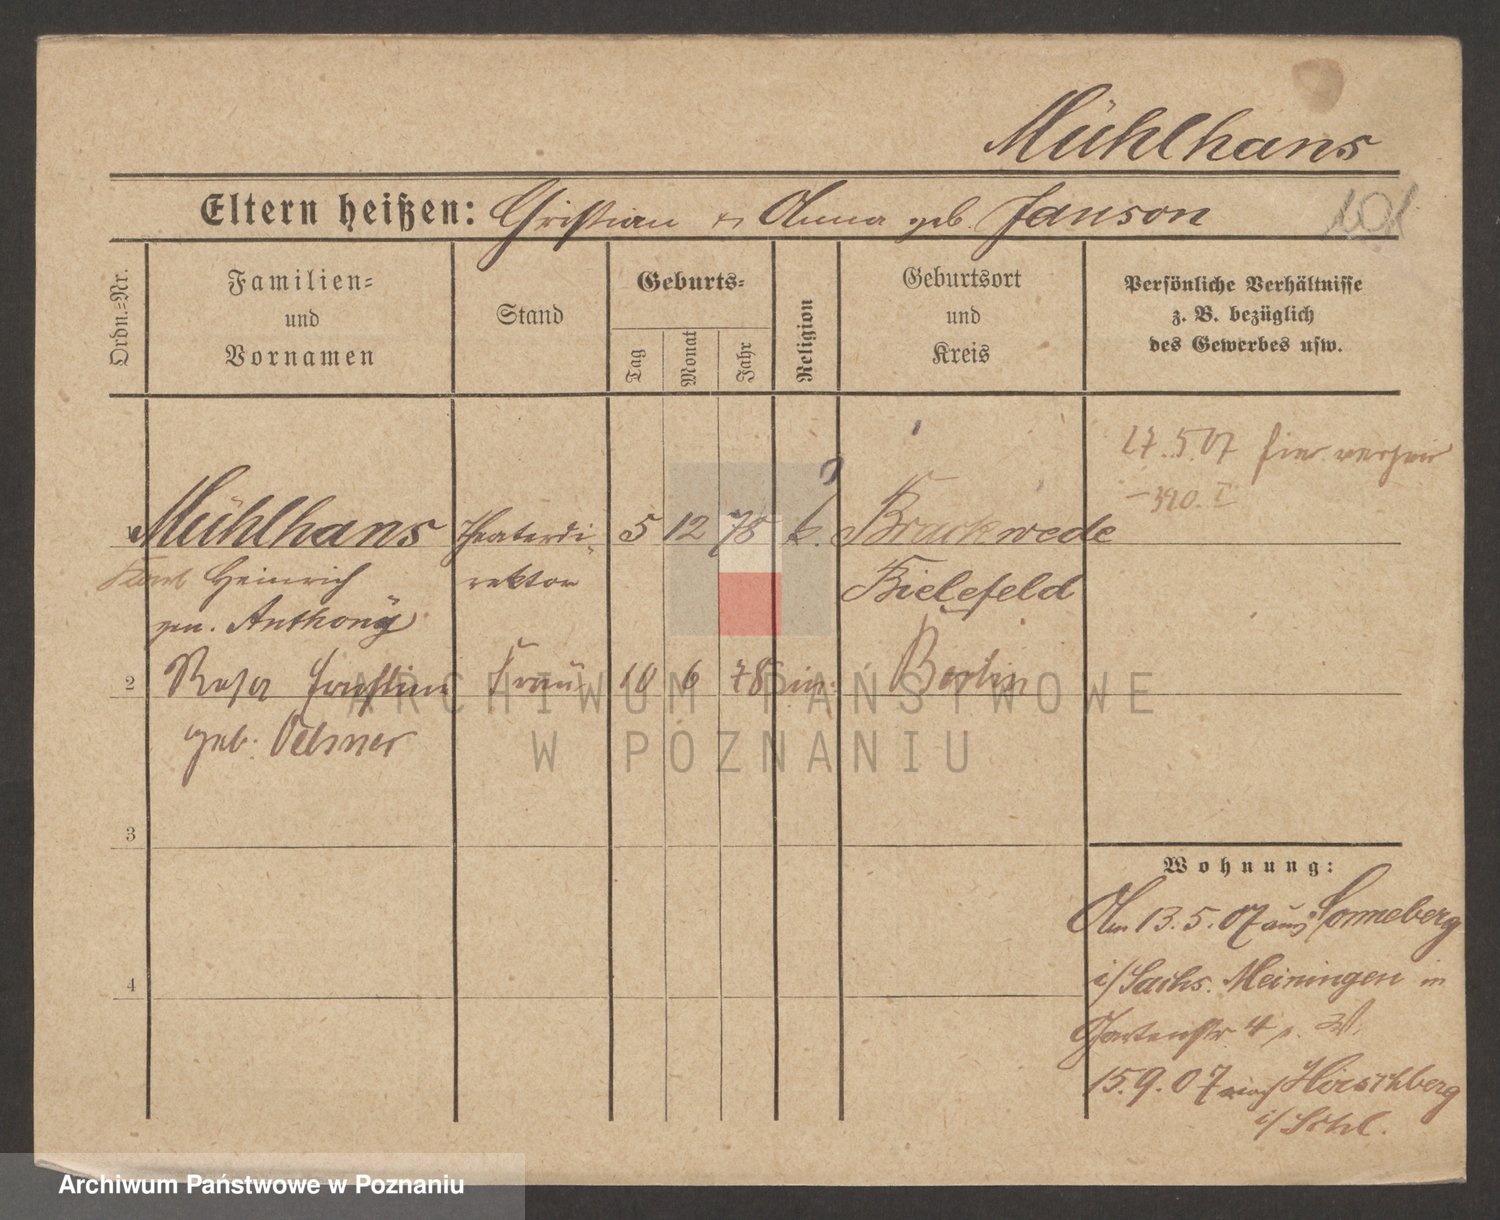 Mühlhans
Eltern heißen: Christian u Anna geb. Janson
101
Ordn.-Nr.
Familien-
und
Vornamen
Stand
Geburts-
Tag
Monat
Jahr
Religion
Geburtsort
und
Kreis
Persönliche Verhältnisse
z. B. bezüglich
des Gewerbes usw.
27.5.07 hier
390. I
1 Mühlhans Theaterdi- 5 12 78 Brackwede
Karl Heinrich rektor Bielefeld
gen. Anthony
2 Rosa Frau 10 6 78 Berlin
geb.
3
4
Wohnung:
Am 13.5.07 aus Sonneberg
i/ Sachs. Meiningen in
Gartenstr 4
15.9.07 nach Hirschberg
i/ Schl.
ARCHIWUM PAŃSTWOWE
W POZNANIU
Archiwum Państwowe w Poznaniu